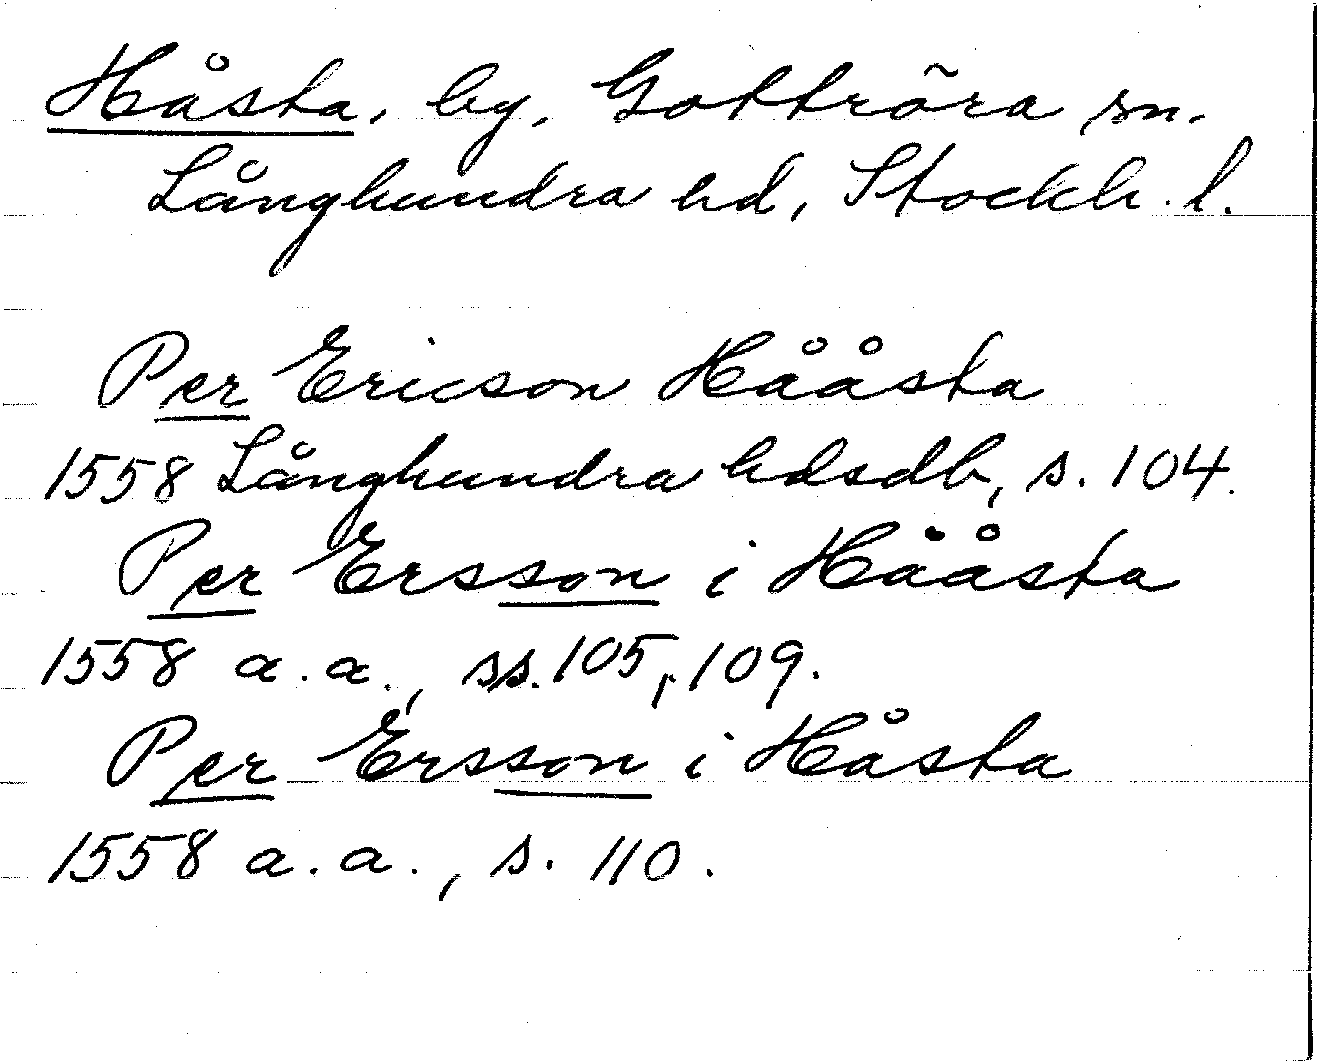 Håsta, by, Gottröra sn.
Långhundra hd, Stockh. l.
Per Ericson Hååsta
1558 Långhundra hdsdb, s. 104.
Per Ersson i Hååsta
1558 a.a., ss. 105, 109.
Per Ersson i Håsta
1558 a.a., s. 110.